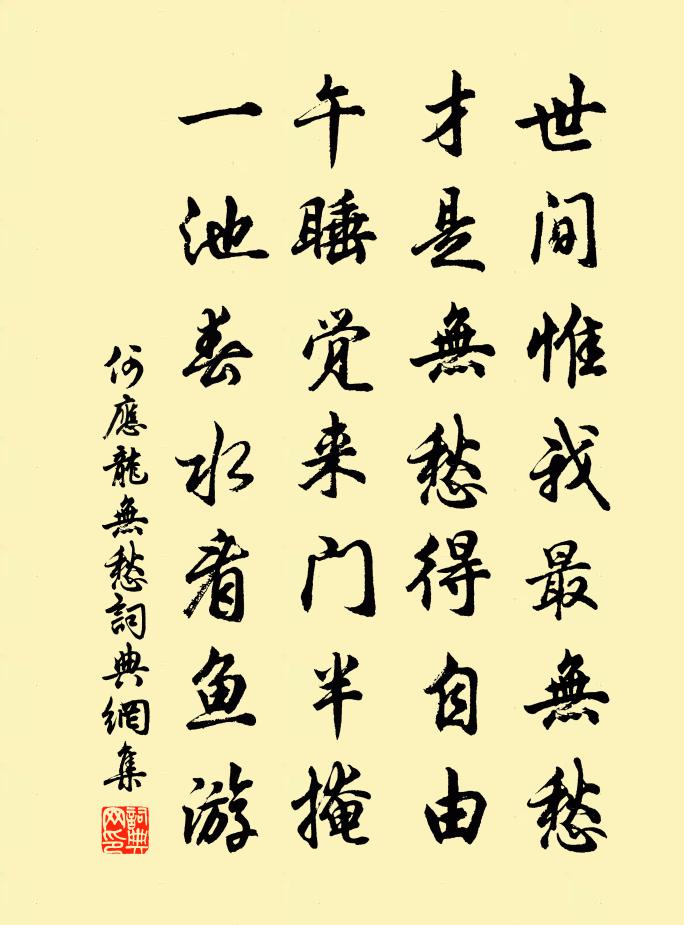 世间惟我最無愁
才是無愁得自由
午睡觉来门半掩
一池春水看鱼游
何應龍無愁詞典網集
詞典
网印